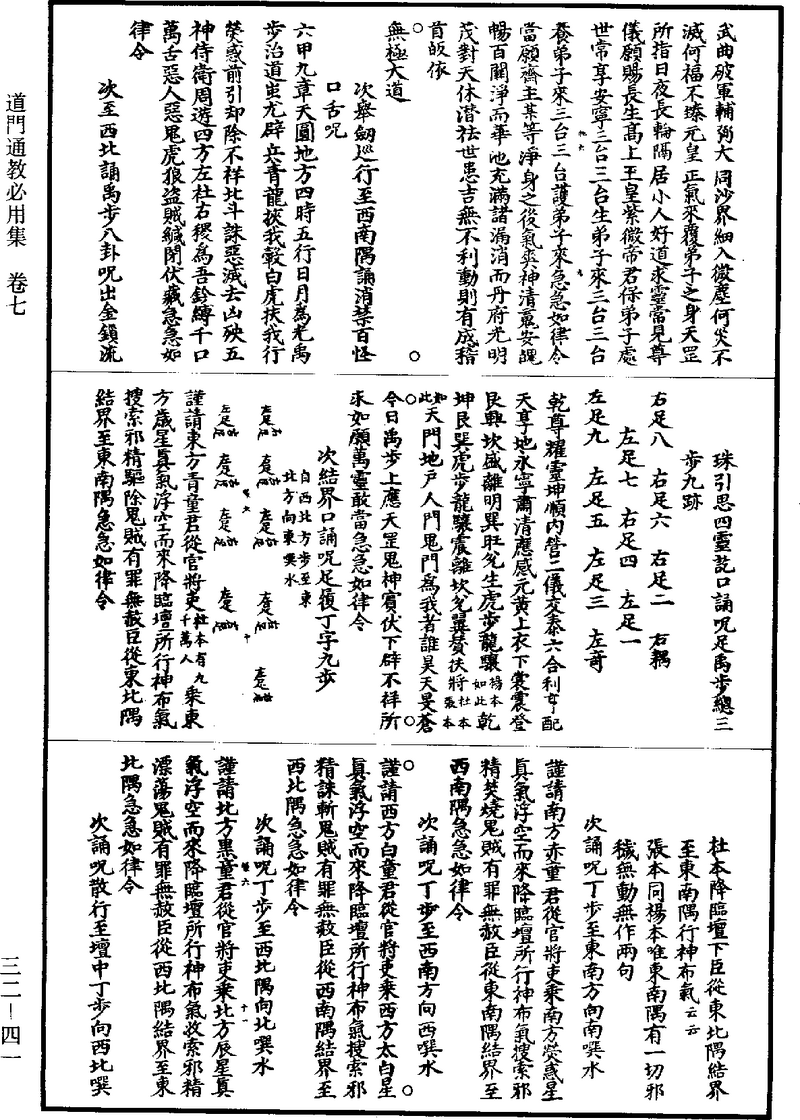 武曲破軍輔弼大周沙界細入微塵何災不
滅何福不臻元皇正氣來覆弟子之身天罡
所指日夜長輪隔居小人好道求靈當見尊
儀願賜長生高上玉皇紫微帝君保弟子處
世常享安寧三台三台生弟子來三台三台
養弟子來三台三台護弟子來急急如律令
當願齋主某等淨身之後氣爽神清魂安魄
暢百關淨而華池充滿諸漏消而丹府光明
茂對天休潜祛世患吉無不利動則有成稽
首皈依
無極大道
次舉劍巡行至西南隅誦消禁百怪
口舌呪
六甲九章天圓地方四時五行日月為光禹
步治道蚩尤辟兵青龍挾我轂白虎扶我行
熒惑前引却除不祥北斗誅惡滅去凶殃五
神侍衛周遊四方左社右稷為吾鈴縛千口
萬舌惡人惡鬼虎狼盜賊緘閉伏藏急急如
律令
次至西北誦禹步八卦呪出金鎖流
珠引思四靈訖口誦呪足禹步總三
步九跡
右足八 右足六 右足二 右耦
左足七 右足四 左足一
左足九 左足五 左足三 左奇
乾尊耀靈坤順內營二儀交泰六合利亨配
天享地永寧肅清應感元黃上衣下裳震登
艮興坎盛離明巽旺兌生虎步龍驤楊本如此乾
坤艮巽虎步龍驤震離坎兌翼贊扶將杜本張本
如此天門地戶人門鬼門為我者誰昊天旻蒼
今日禹步上應天罡鬼神賓伏下辟不祥所
求如願萬靈敢當急急如律令
次結界口誦呪足履丁字九步
自西北方步至東
北方向東噀水
謹請東方青童君從官將吏杜本有九千萬人乘東
方歲星真氣浮空而來降臨壇所行神布氣
搜索邪精驅除鬼賊有罪無赦臣從東北隅
結界至東南隅急急如律令
杜本降臨壇下臣從東北隅結界
至東南隅行神布氣云云
張本同楊本唯東南隅有一切邪
穢無動無作兩句
次誦呪丁步至東南方向南噀水
謹請南方赤童君從官將吏乘南方熒惑星
真氣浮空而來降臨壇所行神布氣搜索邪
精焚燒鬼賊有罪無赦臣從東南隅結界至
西南隅急急如律令
次誦呪丁步至西南方向西噀水
謹請西方白童君從官將吏乘西方太白星
真氣浮空而來降臨壇所行神布氣搜索邪
精誅斬鬼賊有罪無赦臣從西南隅結界至
西北隅急急如律令
次誦呪丁步至西北隅向北噀水
謹請北方黑童君從官將吏乘北方辰星真
氣浮空而來降臨壇所行神布氣收索邪精
漂蕩鬼賊有罪無赦臣從西北隅結界至東
北隅急急如律令
次誦呪散行至壇中丁步向西北噀
道門通教必用集 卷七
三二—四一